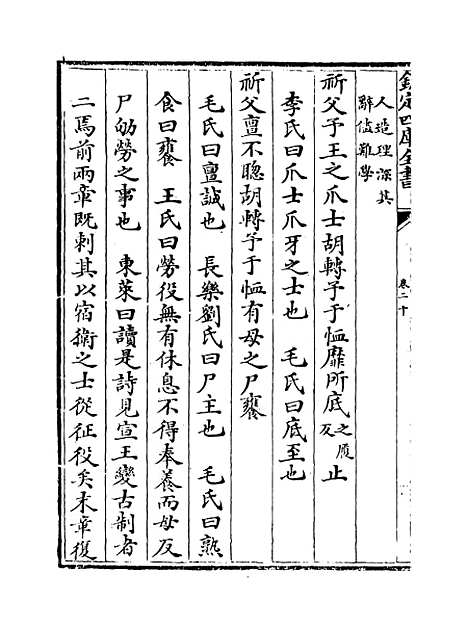 欽定四庫全書
卷二十
人造理深其
辭信難學
祈父予王之爪士胡轉予于恤靡所底之履反止
李氏曰爪士爪牙之士也　毛氏曰底至也
祈父亶不聰胡轉予于恤有母之尸饔
毛氏曰亶誠也　長樂劉氏曰尸主也　毛氏曰熟
食曰饔　王氏曰勞役無有休息不得奉養而母反
尸劬勞之事也　東萊曰讀是詩見宣王變古制者
二焉前兩章既刺其以宿衛之士從征役矣末章復